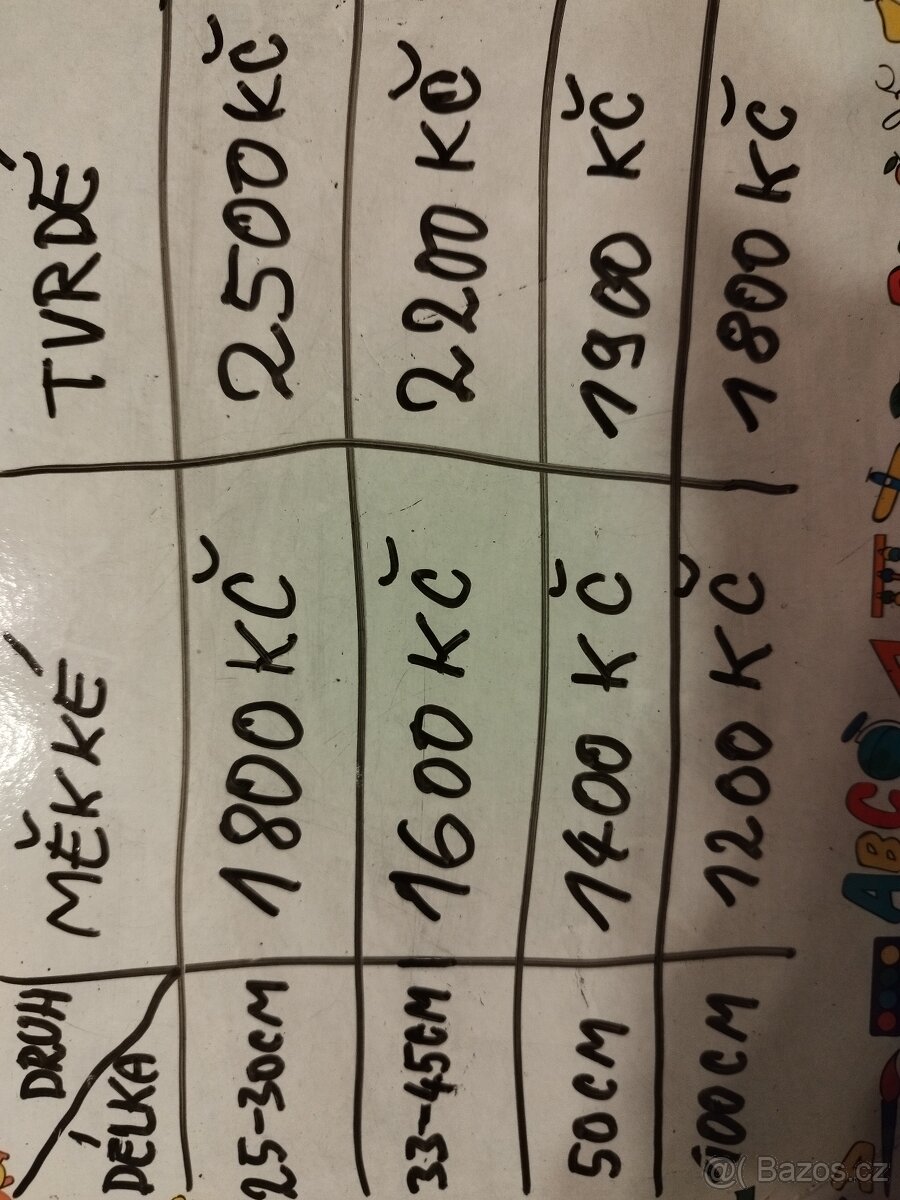 DRUH MĚKKÉ TVRDÉ
DÉLKA
25-30CM 1800 KČ 2500 KČ
33-45CM 1600 KČ 2200 KČ
50CM 1400 KČ 1900 KČ
100CM 1200 KČ 1800 KČ
ABC
Bazos.cz